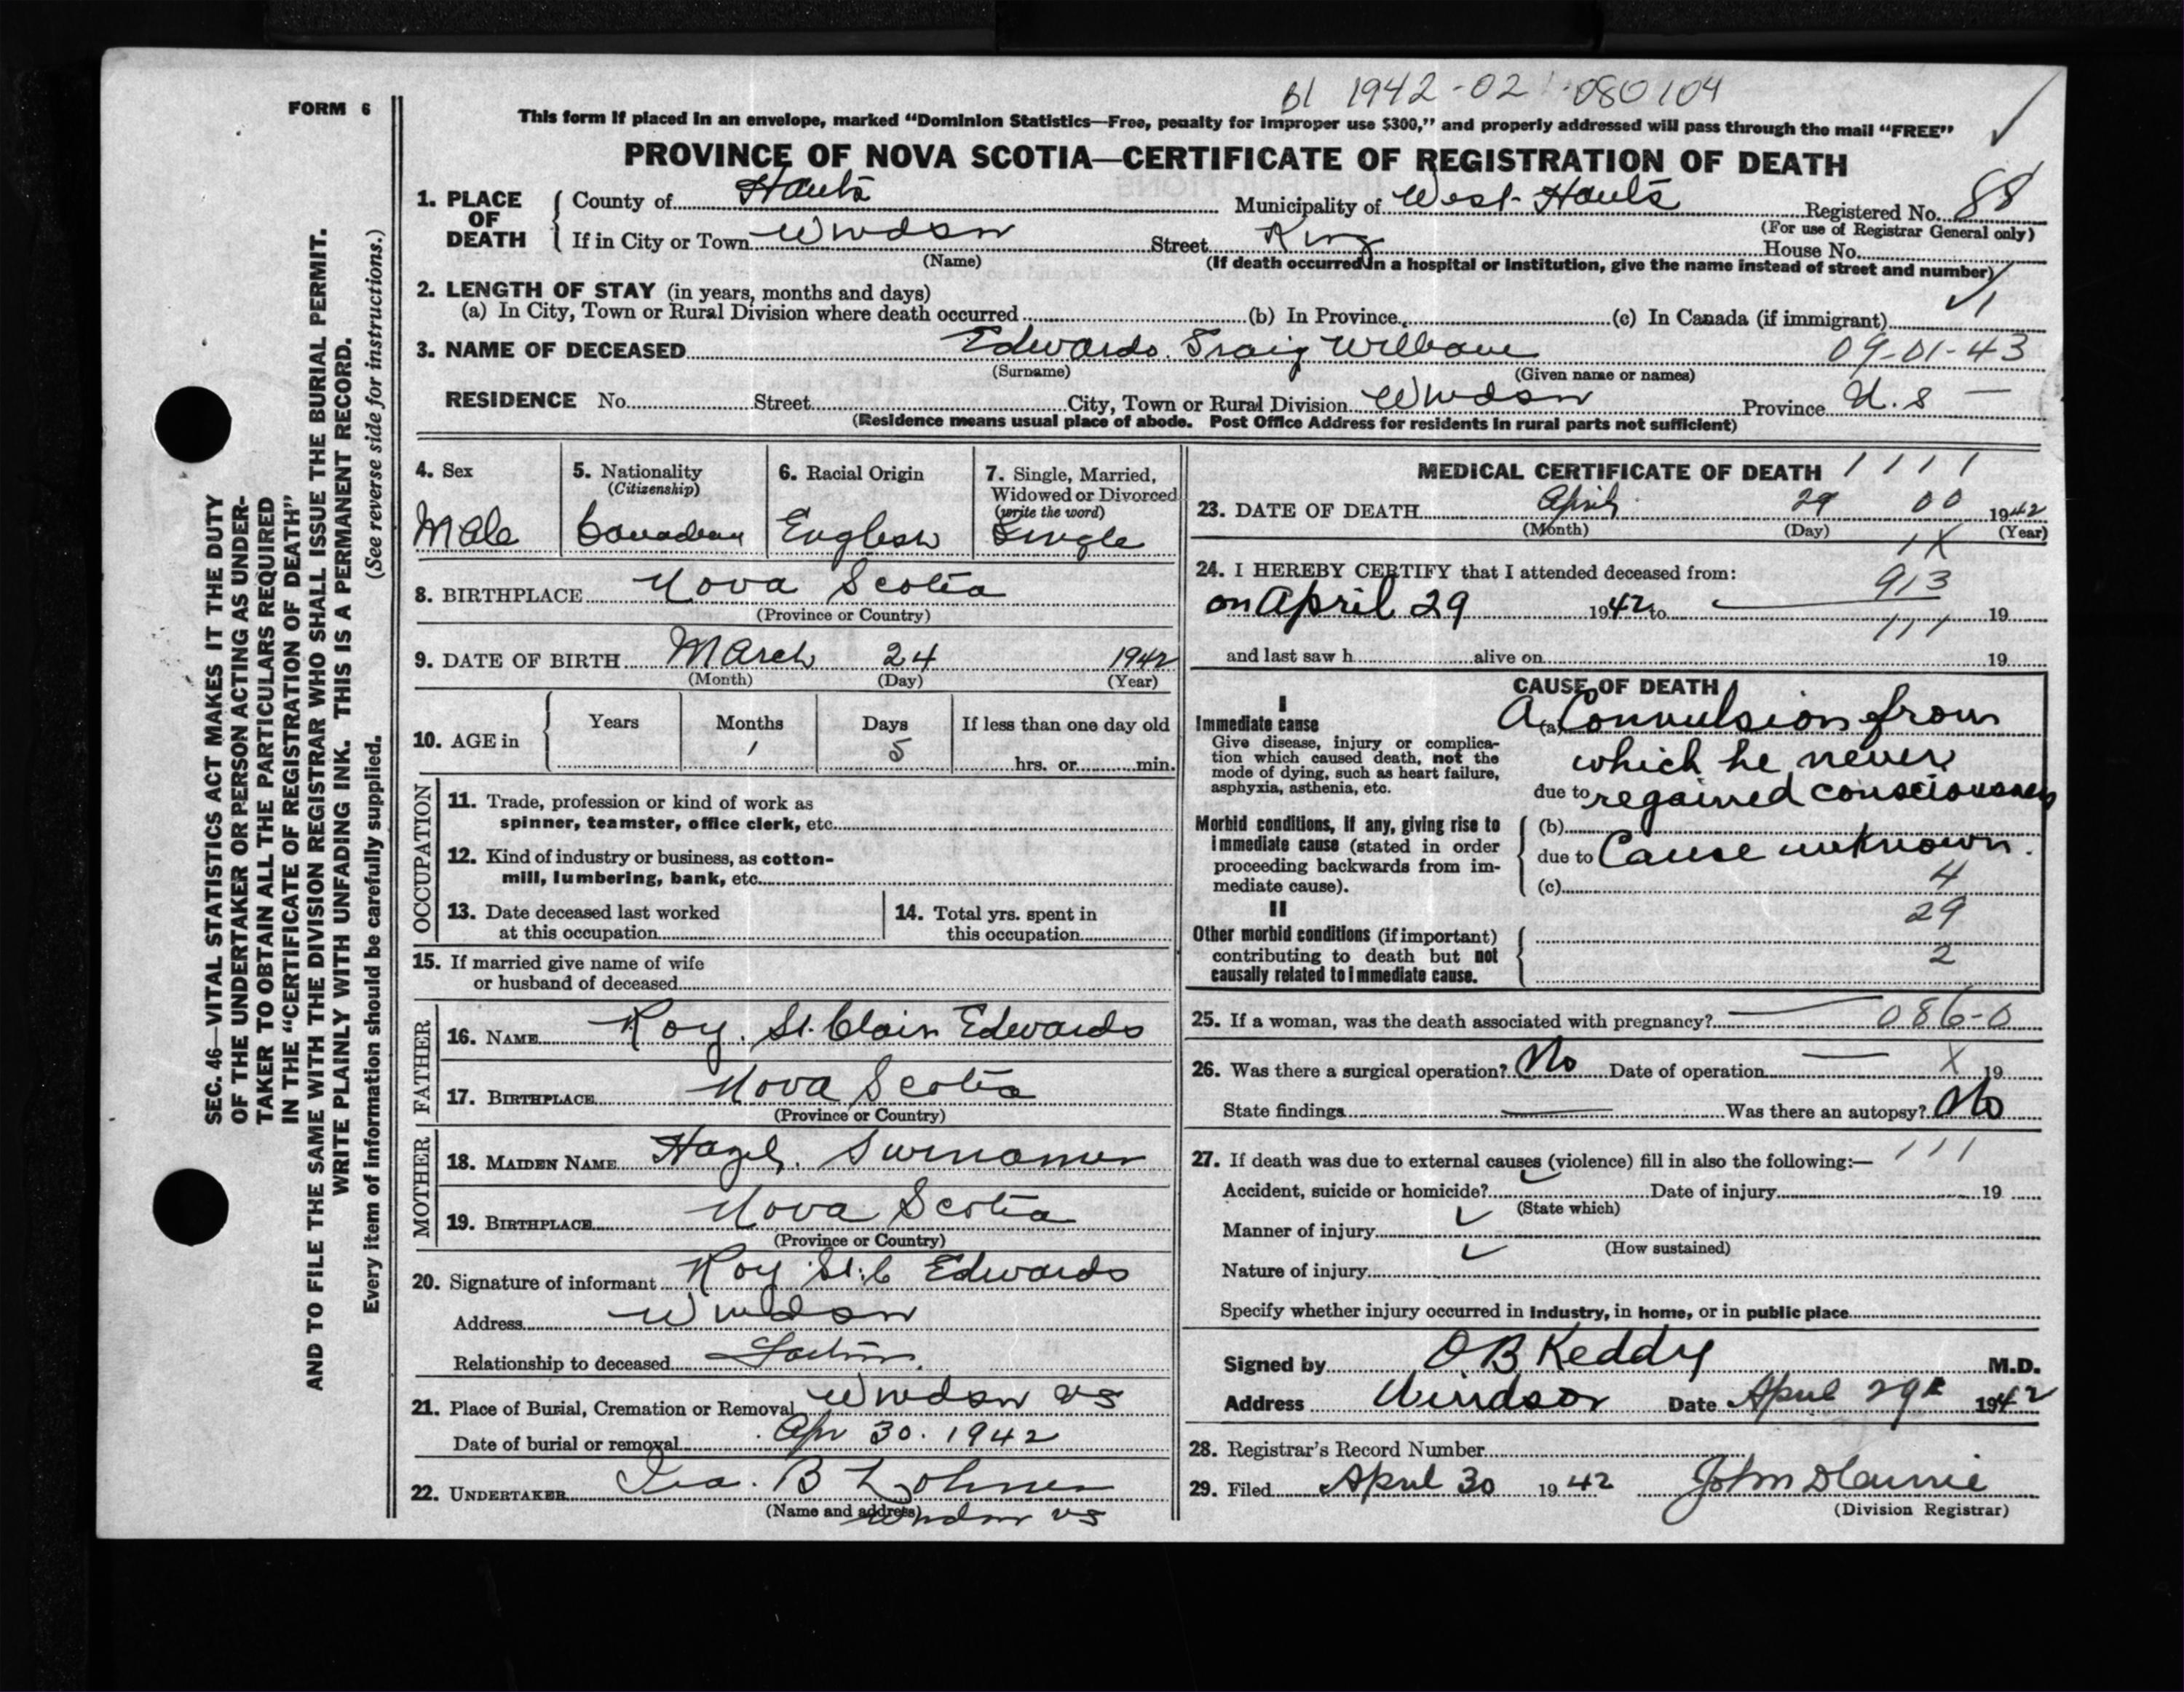 B1 1942-02-080104
FORM 6
This form if placed in an envelope, marked "Dominion Statistics—Free, penalty for improper use $300," and properly addressed will pass through the mail "FREE"
PROVINCE OF NOVA SCOTIA—CERTIFICATE OF REGISTRATION OF DEATH
1. PLACE OF DEATH { County of Hants Municipality of West Hants Registered No. 88
(For use of Registrar General only)
If in City or Town Windsor Street King House No.
(Name) (If death occurred in a hospital or institution, give the name instead of street and number)
2. LENGTH OF STAY (in years, months and days)
(a) In City, Town or Rural Division where death occurred (b) In Province (c) In Canada (if immigrant)
3. NAME OF DECEASED Edwards William 09-01-43
(Surname) (Given name or names)
RESIDENCE No. Street City, Town or Rural Division Windsor Province N.S
(Residence means usual place of abode. Post Office Address for residents in rural parts not sufficient)
4. Sex Male
5. Nationality (Citizenship) Canadian
6. Racial Origin English
7. Single, Married, Widowed or Divorced (write the word) Single
8. BIRTHPLACE Nova Scotia
(Province or Country)
9. DATE OF BIRTH March 24 1942
(Month) (Day) (Year)
10. AGE in { Years Months 1 Days 5 If less than one day old hrs. or min.
OCCUPATION
11. Trade, profession or kind of work as spinner, teamster, office clerk, etc.
12. Kind of industry or business, as cotton-mill, lumbering, bank, etc.
13. Date deceased last worked at this occupation
14. Total yrs. spent in this occupation
15. If married give name of wife or husband of deceased
FATHER
16. NAME Roy St. Clair Edwards
17. BIRTHPLACE Nova Scotia
(Province or Country)
MOTHER
18. MAIDEN NAME Hazel
19. BIRTHPLACE Nova Scotia
(Province or Country)
20. Signature of informant Roy St. C Edwards
Address Windsor
Relationship to deceased Father
21. Place of Burial, Cremation or Removal Windsor NS
Date of burial or removal Apr 30. 1942
22. UNDERTAKER Ira. B
(Name and address) Windsor NS
MEDICAL CERTIFICATE OF DEATH 1 1 1 1
23. DATE OF DEATH April 29 00 1942
(Month) (Day) (Year)
1X
24. I HEREBY CERTIFY that I attended deceased from: 913
on April 29 1942 to 19
111
and last saw h alive on 19
CAUSE OF DEATH
I
Immediate cause
Give disease, injury or complication which caused death, not the mode of dying, such as heart failure, asphyxia, asthenia, etc.
(a) A Convulsion from
which he never
due to regained consciousness
Morbid conditions, if any, giving rise to immediate cause (stated in order proceeding backwards from immediate cause).
(b)
due to Cause unknown.
(c) 4
II 29
Other morbid conditions (if important) contributing to death but not causally related to immediate cause.
2
25. If a woman, was the death associated with pregnancy? 086-0
26. Was there a surgical operation? No Date of operation X 19
State findings Was there an autopsy? No
27. If death was due to external causes (violence) fill in also the following:— 1 1 1
Accident, suicide or homicide? Date of injury 19
(State which)
Manner of injury
(How sustained)
Nature of injury
Specify whether injury occurred in industry, in home, or in public place
Signed by O B Keddy M.D.
Address Windsor Date April 29th 1942
28. Registrar's Record Number
29. Filed April 30 1942
(Division Registrar)
SEC. 46—VITAL STATISTICS ACT MAKES IT THE DUTY
OF THE UNDERTAKER OR PERSON ACTING AS UNDER-
TAKER TO OBTAIN ALL THE PARTICULARS REQUIRED
IN THE "CERTIFICATE OF REGISTRATION OF DEATH"
AND TO FILE THE SAME WITH THE DIVISION REGISTRAR WHO SHALL ISSUE THE BURIAL PERMIT.
WRITE PLAINLY WITH UNFADING INK. THIS IS A PERMANENT RECORD.
Every item of information should be carefully supplied. (See reverse side for instructions.)